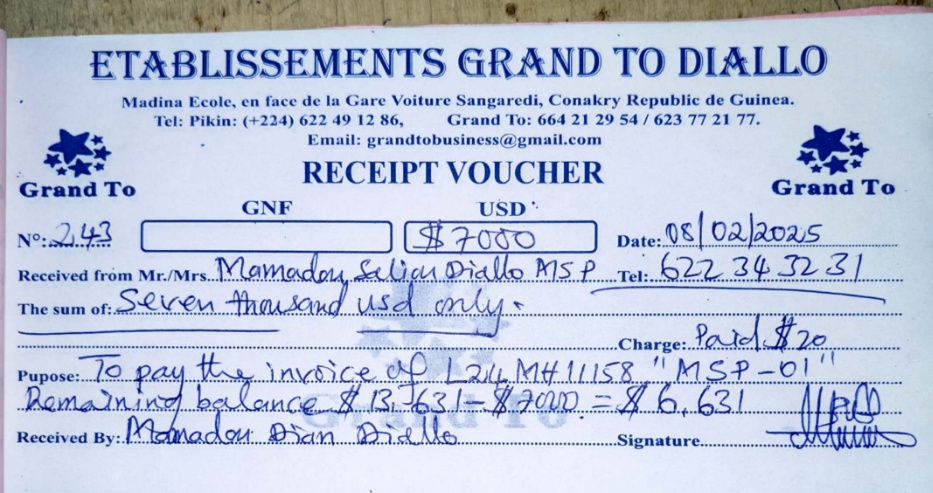 ETABLISSEMENTS GRAND TO DIALLO
Madina Ecole, en face de la Gare Voiture Sangaredi, Conakry Republic de Guinea.
Tel: Pikin: (+224) 622 49 12 86, Grand To: 664 21 29 54 / 623 77 21 77.
Email: grandtobusiness@gmail.com
Grand To
RECEIPT VOUCHER
Grand To
GNF USD
Nº: 243 $ 7000 Date: 08/02/2025
Received from Mr./Mrs. Mamadou Saliou Diallo MSP Tel: 622 34 32 31
The sum of: Seven thousand usd only.
Charge: Paid $20
Pupose: To pay the invoice of L24 MH11158 "MSP-01"
Remaining balance $ 13,631 - $7000 = $ 6,631
Received By: Mamadou Dian Diallo Signature